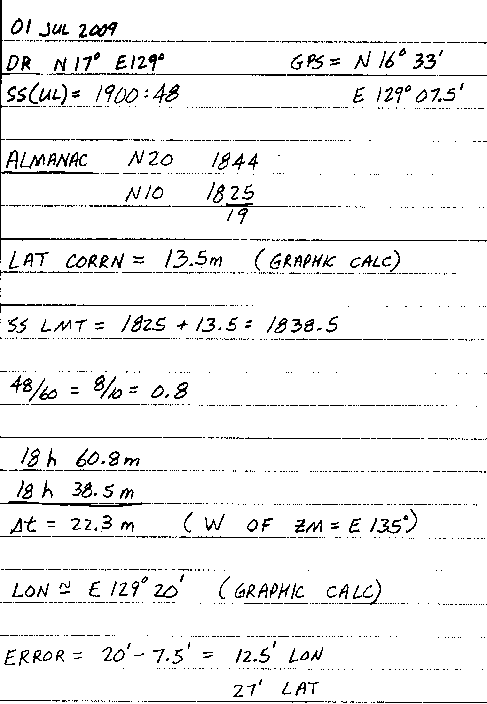 01 JUL 2009
DR N 17° E 129° GPS = N 16° 33'
SS(UL) = 1900:48 E 129° 07.5'
ALMANAC N20 1844
N10 1825
19
LAT CORRN = 13.5m (GRAPHIC CALC)
SS LMT = 1825 + 13.5 = 1838.5
48/60 = 8/10 = 0.8
18h 60.8m
18h 38.5m
Δt = 22.3m (W OF ZM = E 135°)
LON ≅ E 129° 20' (GRAPHIC CALC)
ERROR = 20' - 7.5' = 12.5' LON
27' LAT